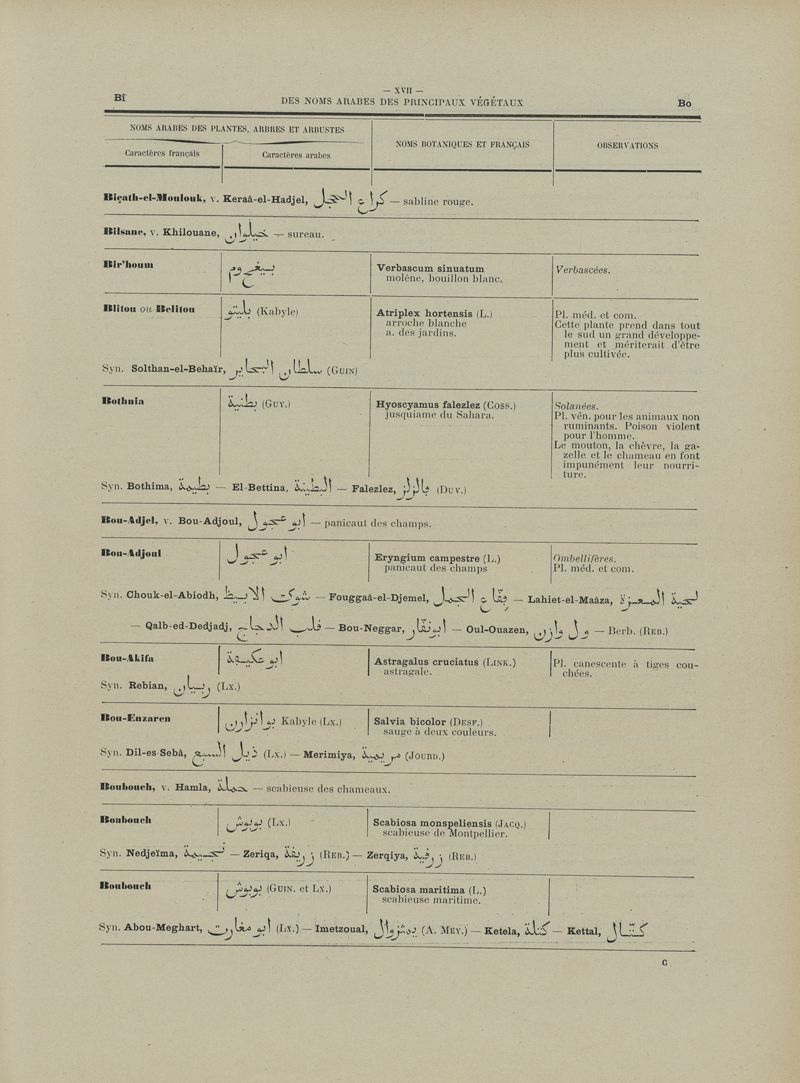 — XVII —
Bi
DES NOMS ARABES DES PRINCIPAUX VÉGÉTAUX
Bo
NOMS ARABES DES PLANTES, ARBRES ET ARBUSTES
Caractères français
Caractères arabes
NOMS BOTANIQUES ET FRANÇAIS
OBSERVATIONS
Biçath-el-Moulouk, v. Keraà-el-Hadjel, كراع الحجل — sabline rouge.
Bilsane, v. Khilouane, خيلوان — sureau.
Bir'houm
بيغوم
Verbascum sinuatum
molène, bouillon blanc.
Verbascées.
Blitou ou Belitou
بليتو (Kabyle)
Atriplex hortensis (L.)
arroche blanche
a. des jardins.
Pl. méd. et com.
Cette plante prend dans tout
le sud un grand développe-
ment et mériterait d'être
plus cultivée.
Syn. Solthan-el-Behaïr, سلطان البحاير (GUIN)
Bothnia
بطنية (GUY.)
Hyoscyamus falezlez (COSS.)
jusquiame du Sahara.
Solanées.
Pl. vén. pour les animaux non
ruminants. Poison violent
pour l'homme.
Le mouton, la chèvre, la ga-
zelle et le chameau en font
impunément leur nourri-
ture.
Syn. Bothima, بطيمة — El-Bettina, البطينة — Falezlez, فالزلز (DUV.)
Bou-Adjel, v. Bou-Adjoul, ابو عجول — panicaut des champs.
Bou-Adjoul
ابو عجول
Eryngium campestre (L.)
panicaut des champs
Ombellifères.
Pl. méd. et com.
Syn. Chouk-el-Abiodh, شوكت الابيط — Fouggaà-el-Djemel, فقاع الجمل — Lahiet-el-Maàza, لحية المعزة
— Qalb-ed-Dedjadj, قلب الدجاج — Bou-Neggar, ابونقار — Oul-Ouazen, ول وازن — Berb. (REB.)
Bou-Akifa
ابو عكيفة
Astragalus cruciatus (LINK.)
astragale.
Pl. canescente à tiges cou-
chées.
Syn. Rebian, ربيان (LX.)
Bou-Enzaren
بو انزارن Kabyle (LX.)
Salvia bicolor (DESF.)
sauge à deux couleurs.
Syn. Dil-es-Sebâ, ذيل السبع (LX.) — Merimiya, مريمية (JOURD.)
Boubouch, v. Hamla, حملة — scabieuse des chameaux.
Boubouch
بوبوش (LX.)
Scabiosa monspeliensis (JACQ.)
scabieuse de Montpellier.
Syn. Nedjeïma, نجيمة — Zeriqa, زريقة (REB.) — Zerqiya, زرقية (REB.)
Boubouch
بوبوش (GUIN. et LX.)
Scabiosa maritima (L.)
scabieuse maritime.
Syn. Abou-Meghart, ابو مغارت (LX.) — Imetzoual, يمتزوال (A. MEY.) — Ketela, كتلة — Kettal, كتال
C